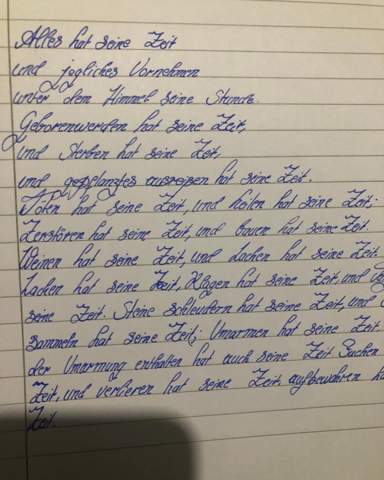 Alles hat seine Zeit
und jegliches Vornehmen
unter dem Himmel seine Stunde.
Geborenwerden hat seine Zeit,
und Sterben hat seine Zeit,
und gepflanztes ausreißen hat seine Zeit.
Töten hat seine Zeit, und heilen hat seine Zeit;
Zerstören hat seine Zeit, und bauen hat seine Zeit.
Weinen hat seine Zeit, und Lachen hat seine Zeit.
Lachen hat seine Zeit, Klagen hat seine Zeit, und
seine Zeit. Steine schleudern hat seine Zeit, und
sammeln hat seine Zeit; Umarmen hat seine Zeit
der Umarmung enthalten hat auch seine Zeit Suchen
Zeit, und verlieren hat seine Zeit, aufbewahren
Zeit.